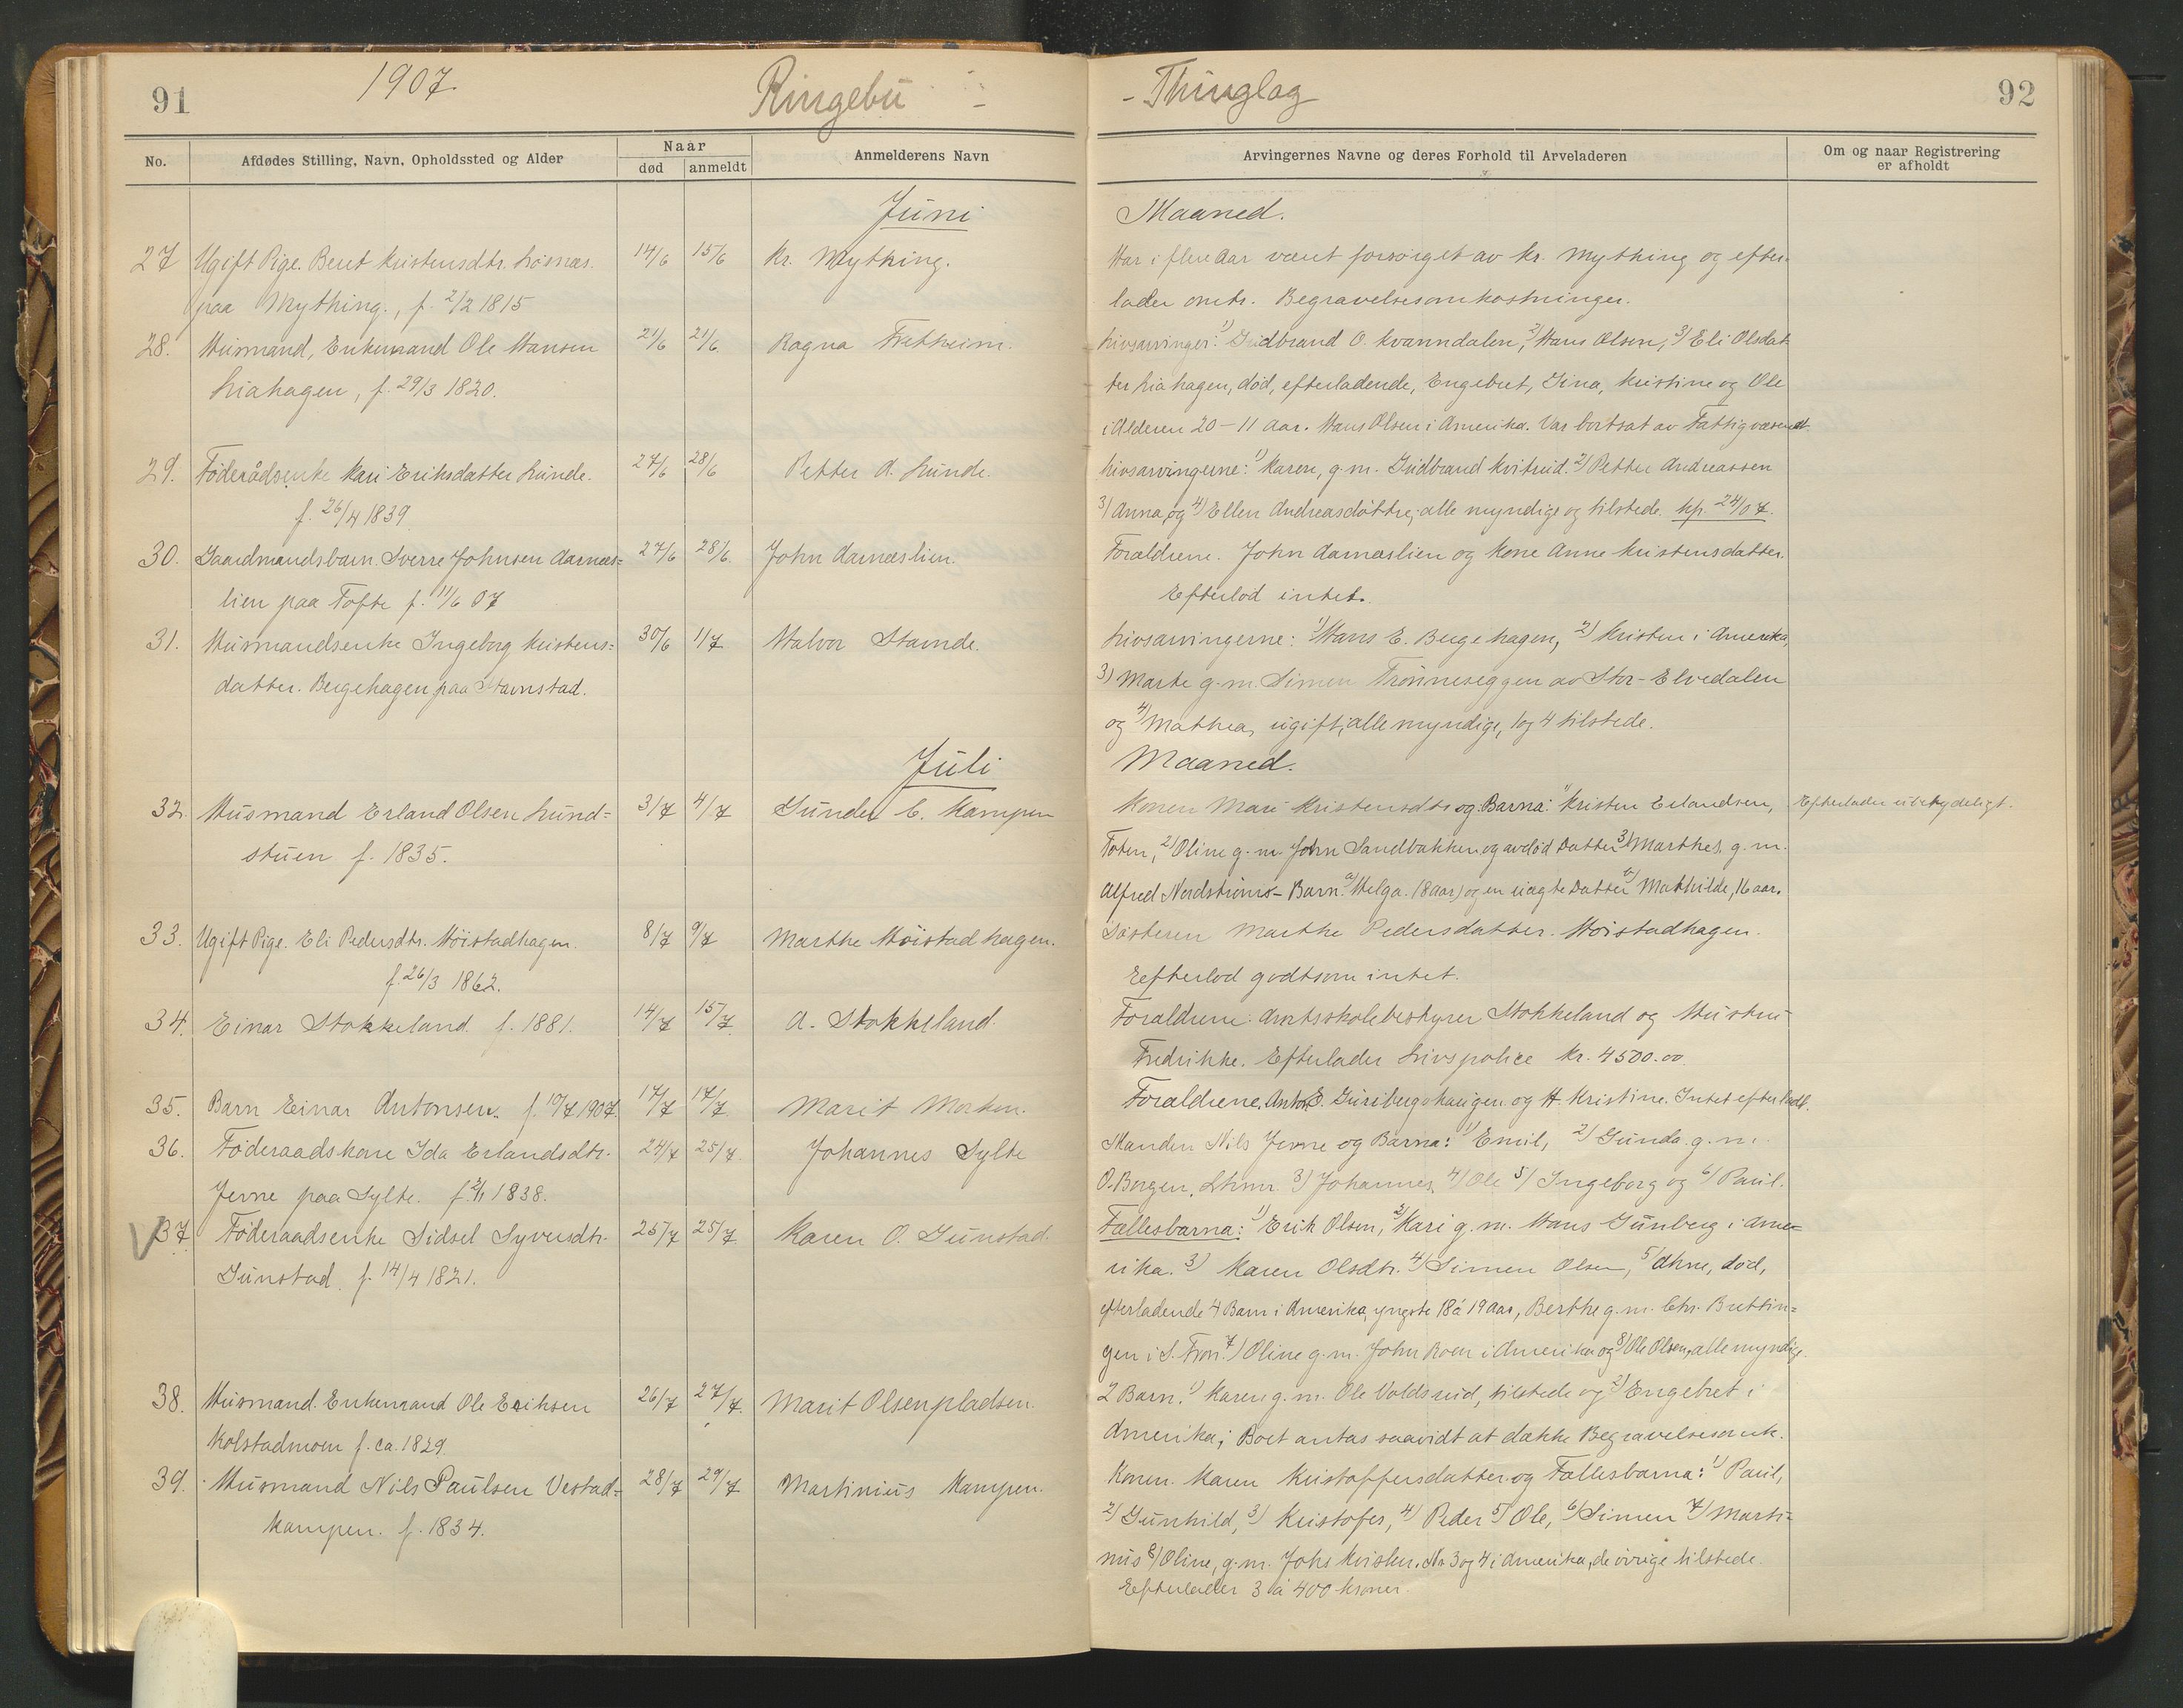 91
1907.
Ringebu -
- Thinglag
92
No.
Afdødes Stilling, Navn, Opholdssted og Alder
Naar
død
anmeldt
Anmelderens Navn
Arvingernes Navne og deres Forhold til Arveladeren
Om og naar Registrering
er afholdt
Juni
Maaned.
27 Ugift Pige. Berit Kristensdtr. Løsnæs. 14/6 15/6 Kr. Mything.
paa Mything., f. 2/2 1815
Har i flere Aar været forsørget av Kr. Mything og efter-
lader omtr. Begravelsesomkostninger.
28. Husmand, Enkemand Ole Hansen 21/6 21/6 Ragna Fatheim.
Liahagen, f. 29/3 1820.
Livsarvinger: 1) Gudbrand O. Kvanndalen, 2) Hans Olsen, 3) Eli Olsdat-
ter Liahagen, død, efterladende, Engebret, Gina, Kristine og Ole
i Alderen 20-11 Aar. Hans Olsen i Amerika. Var bortsat av Fattigvæsenet.
29. Føderådsenke Kari Eriksdatter Lunde. 27/6 28/6 Petter A. Lunde.
f. 26/4 1839
Livsarvingerne: 1) Karen, g. m. Gudbrand Kvitrud. 2) Petter Andreassen
3) Anna, og 4) Ellen Andreasdøttre; alle myndige og tilstede.
30. Gaardmandsbarn. Sverre Johnsen Aarnæs= 27/6 28/6. John Aarnæslien.
lien paa Tofte f. 11/6 07
Forældrene. John Aarnæslien og Kone Anne Kristensdatter.
Efterlod intet.
31. Husmandsenke Ingeborg Kristens= 30/6 1/7 Halvor Stavnde.
datter. Bergehagen paa Stavnstad.
Livsarvingerne: 1) Hans E. Bergehagen, 2) Kristen i Amerika,
3) Marte g. m. Simen Trønneseggen av Stor-Elvedalen
og 4) Mathea, ugift, alle myndige, 1 og 4 tilstede.
Juli
Maaned.
32. Husmand Erland Olsen Lund= 3/7 4/7 Gunder C. Kampen
stuen f. 1835.
Konen Mari Kristensdtr og Barna: 1) Kristen Erlandsen,
Efterlader ubetydeligt.
Toten, 2) Oline g. m. John Sandbakken og avdød Datter 3) Marthes, g. m.
Alfred Nordstrøms - Barn a) Helga. (8 aar) og en uægte Datter b) Mathilde, 16 aar.
33. Ugift Pige. Eli Pedersdtr. Høistadhagen. 8/7 9/7 Marthe Høistadhagen.
f. 26/3 1862.
Søsteren Marthe Pedersdatter. Høistadhagen.
Eefterlod godtsom intet.
34. Einar Stokkeland f. 1881. 14/7 15/7 A. Stokkeland.
Forældrene: Amtsskolebestyrer Stokkeland og Hustru
Fredrikke. Efterlader Livspolice kr. 4500.00
35. Barn Einar Antonsen. f. 10/7 1907 17/7 17/7 Marit Morken.
Forældrene. Anton E. Gunsberghaugen og H. Kristine. Intet efterladt.
36. Føderaadskone Ida Erlandsdtr. 24/7 25/7 Johannes Sylte
Jevne paa Sylte. f. 1838.
Manden Nils Jevne og Barna: 1) Emil, 2) Gunda g. m.
O. Borgen, Lhmr. 3) Johannes, 4) Ole 5) Ingeborg og 6) Paul.
V 37 Føderaadsenke Sidsel Syversdtr. 25/7 25/7 Karen O. Gunstad.
Gunstad. f. 14/4 1821.
Fællesbarna: 1) Erik Olsen, 2) Kari g. m. Hans Gunberg i Ame-
rika. 3) Karen Olsdtr. 4) Simen Olsen, 5) Ahne, død,
efterladende 4 Barn i Amerika, yngste 18 á 19 Aar, Berthe g. m. Chr. Brettin=
gen i S. Fron. 7) Oline g. m. John Roen i Amerika og 8) Ole Olsen, alle myndige.
38. Husmand. Enkemand Ole Eriksen 26/7 27/7. Marit Olsenpladsen.
Kolstadmoen f. ca. 1829.
2 Barn. 1) Karen g. m. Ole Voldsrud, tilstede og 2) Engebret i
Amerika; Boet antas saavidt at dække Begravelsesomk.
39. Husmand Nils Paulsen Vestad= 28/7 29/7 Martinius Kampen.
kampen. f. 1834.
Konen. Karen Kristoffersdatter og Fællesbarna: 1) Paul,
2) Gunhild, 3) Kristofer, 4) Peder 5) Ole, 6) Simen 7) Marti=
nius 8) Oline, g. m. Johs Kvislen. No 3 og 4 i Amerika, de øvrige tilstede.
Eefterlader 3 á 400 kroner.